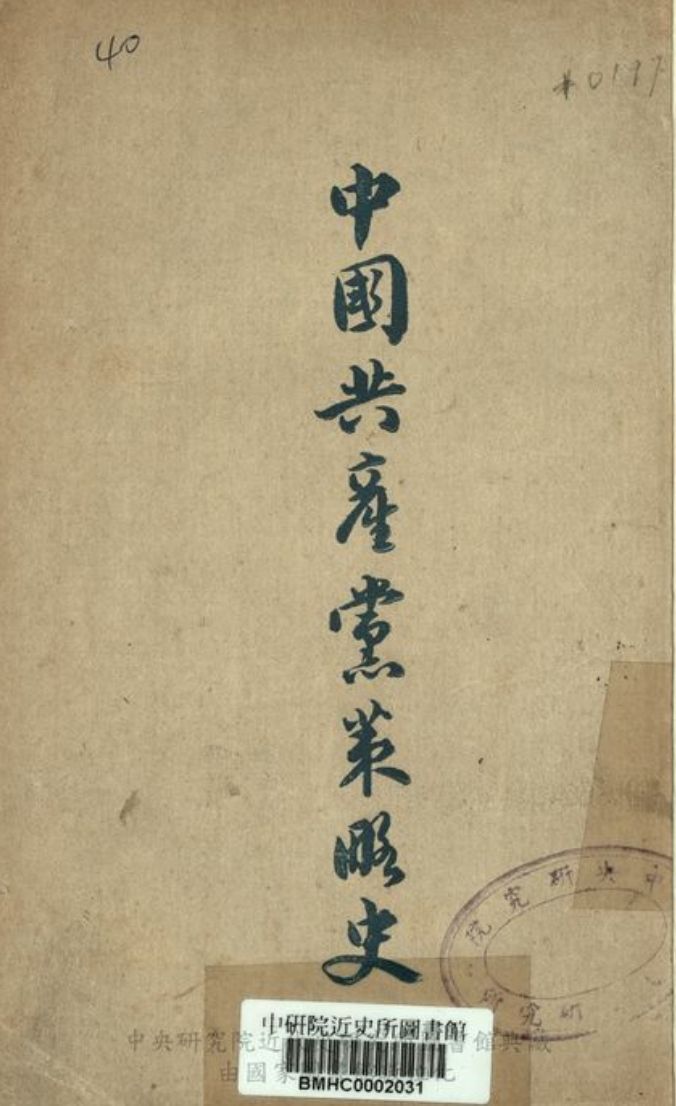 40
#0197
中國共產黨策略史
中央研究院
研究
中研院近史所圖書館
BMHC0002031
中央研究院近 書館典藏
由國家 化